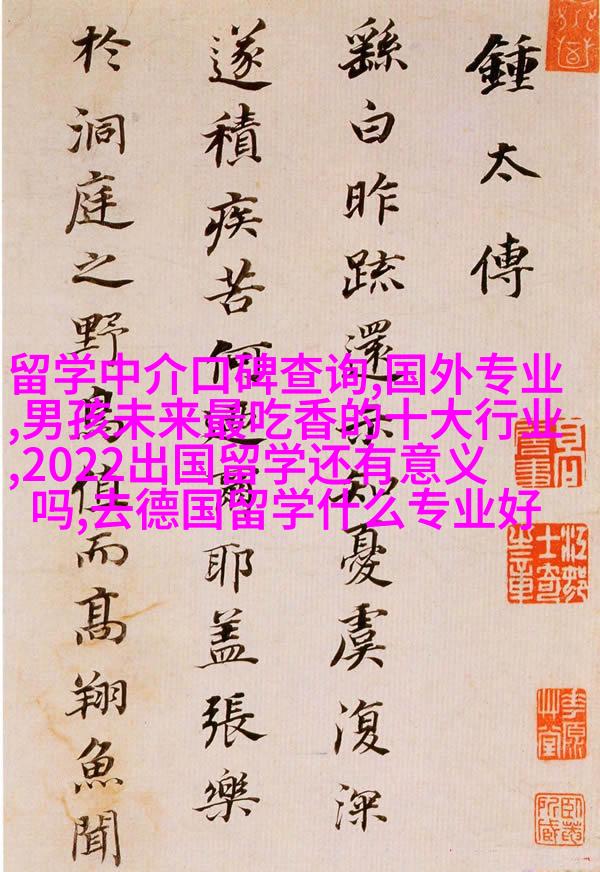 鍾太傅
繇白昨疏還示知憂虞復深
遂積疾苦何迺爾耶蓋張樂
於洞庭之野鳥值而高翔魚聞
留学中介口碑查询,国外专业
,男孩未来最吃香的十大行业
,2022出国留学还有意义
吗,去德国留学什么专业好